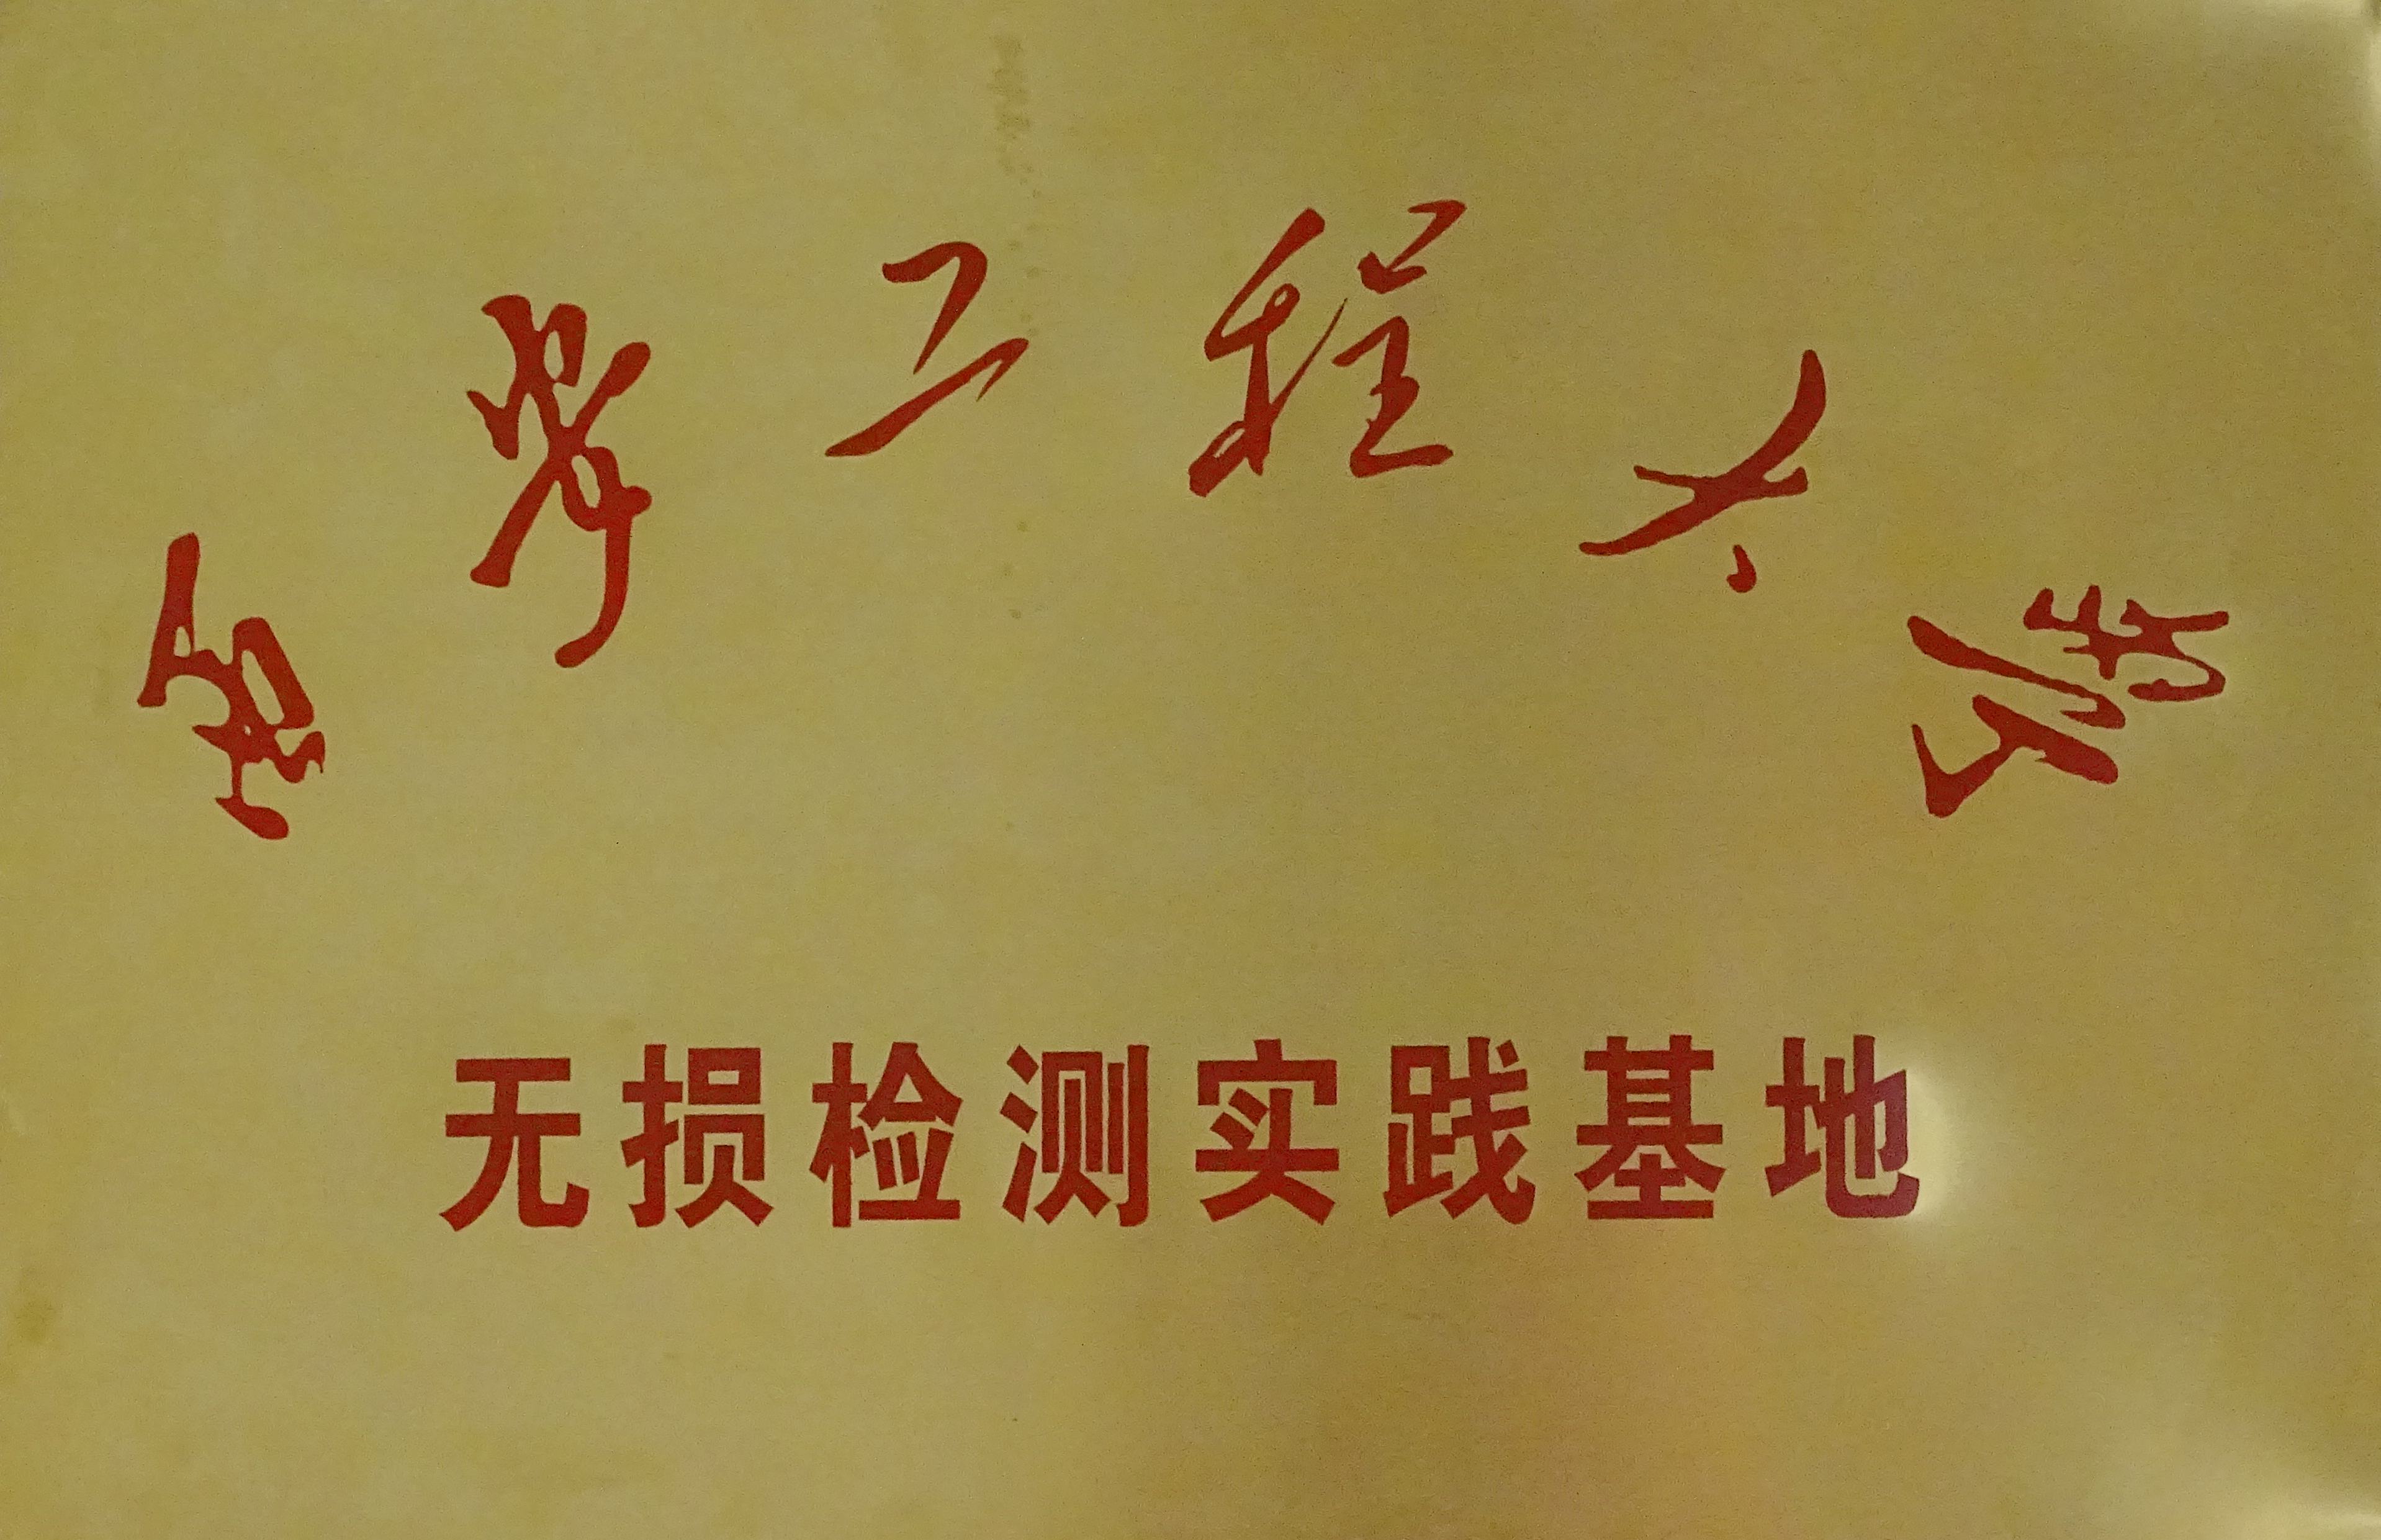 工程大学
无损检测实践基地